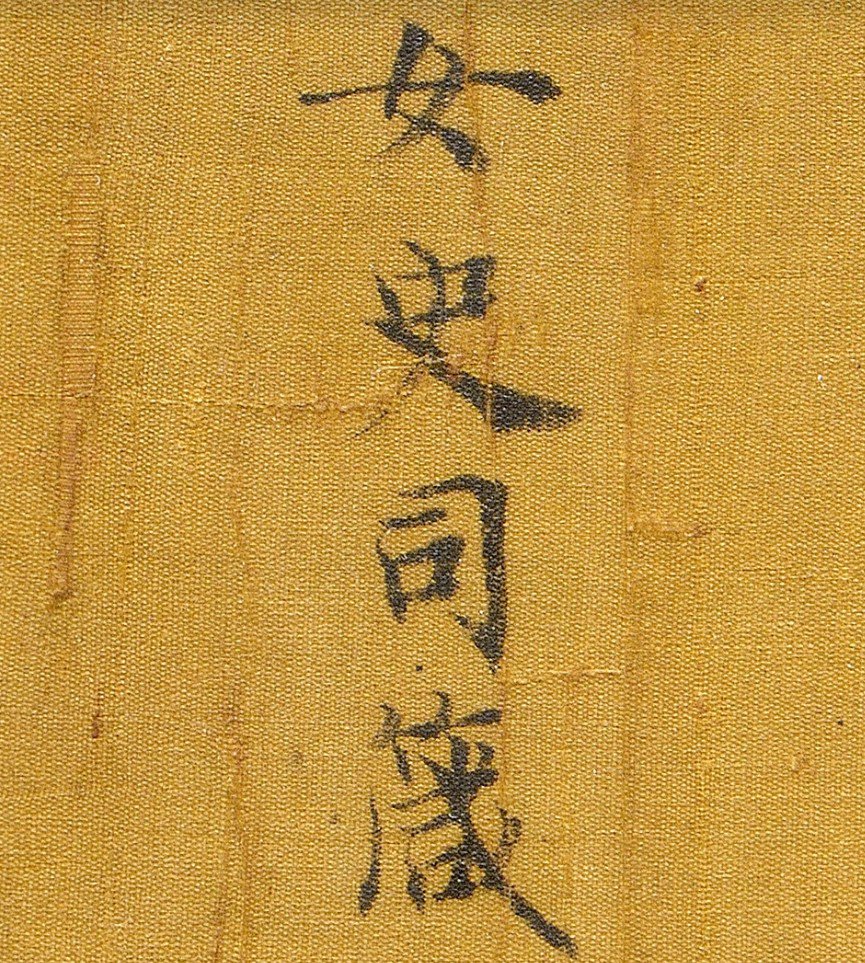 女史司箴